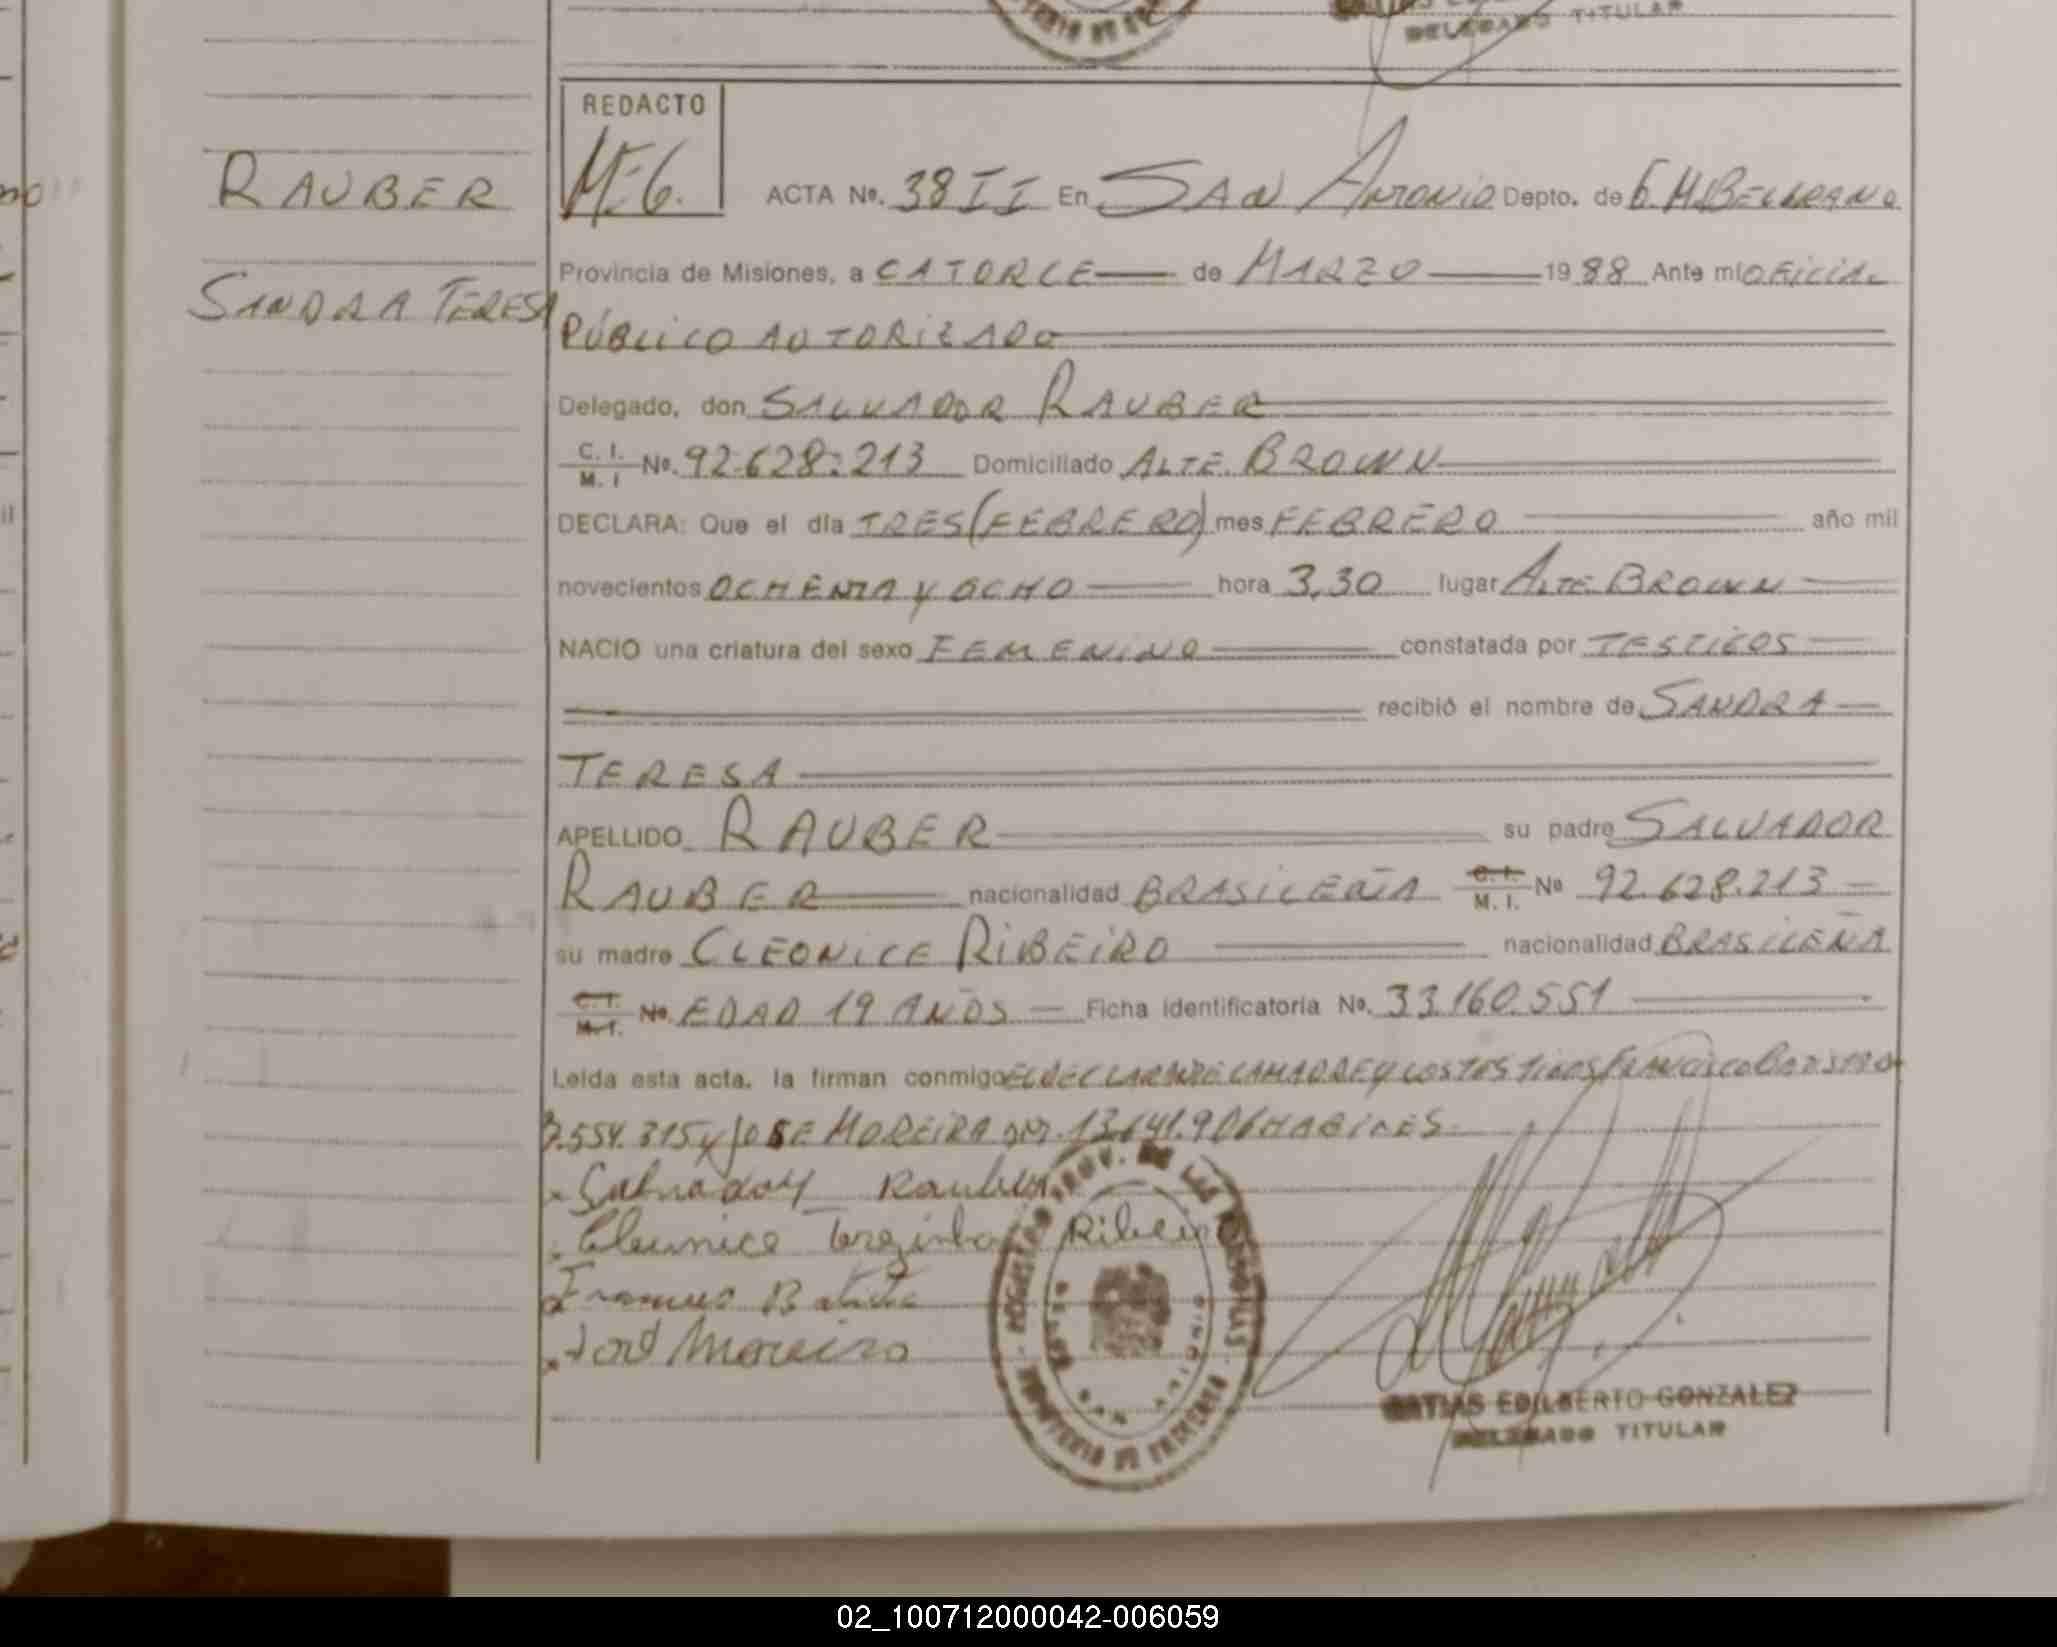 DELEGADO TITULAR
REDACTO
M.E.G.
RAUBER
SANDRA TERESA
ACTA Nº. 38 II En SAN ANTONIO Depto. de G.M.BELGRANO
Provincia de Misiones, a CATORCE de MARZO 1988 Ante mi OFICIAL
PÚBLICO AUTORIZADO
Delegado, don SALVADOR RAUBER
C. I. M. I Nº. 92.628.213 Domiciliado ALTE. BROWN
DECLARA: Que el día TRES (FEBRERO) mes FEBRERO año mil
novecientos OCHENTA Y OCHO hora 3,30 lugar ALTE. BROWN
NACIO una criatura del sexo FEMENINO constatada por TESTIGOS
recibió el nombre de SANDRA
TERESA
APELLIDO RAUBER su padre SALVADOR
RAUBER nacionalidad BRASILEÑA C. I. M. I. Nº 92.628.213
su madre CLEONICE RIBEIRO nacionalidad BRASILEÑA
C. I. M. I. Nº. EDAD 19 AÑOS Ficha identificatoria Nº. 33.160.551
Leída esta acta, la firman conmigo EL DECLARANTE LA MADRE Y LOS TESTIGOS FRANCISCO
.554.315 y JOSE MOREIRA 13.641.906 HABILES
Salvador Rauber
Cleunice Terezinha Ribeiro
José Moreira
REGISTRO PROV. DE LAS PERSONAS
MINISTERIO DE GOBIERNO
SAN ANTONIO
MATIAS EDILBERTO GONZALEZ
DELEGADO TITULAR
02_100712000042-006059